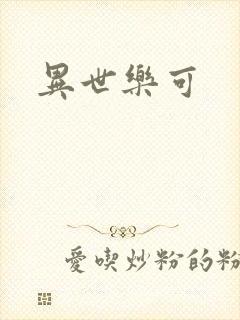 異世樂可
愛喫炒粉的粉